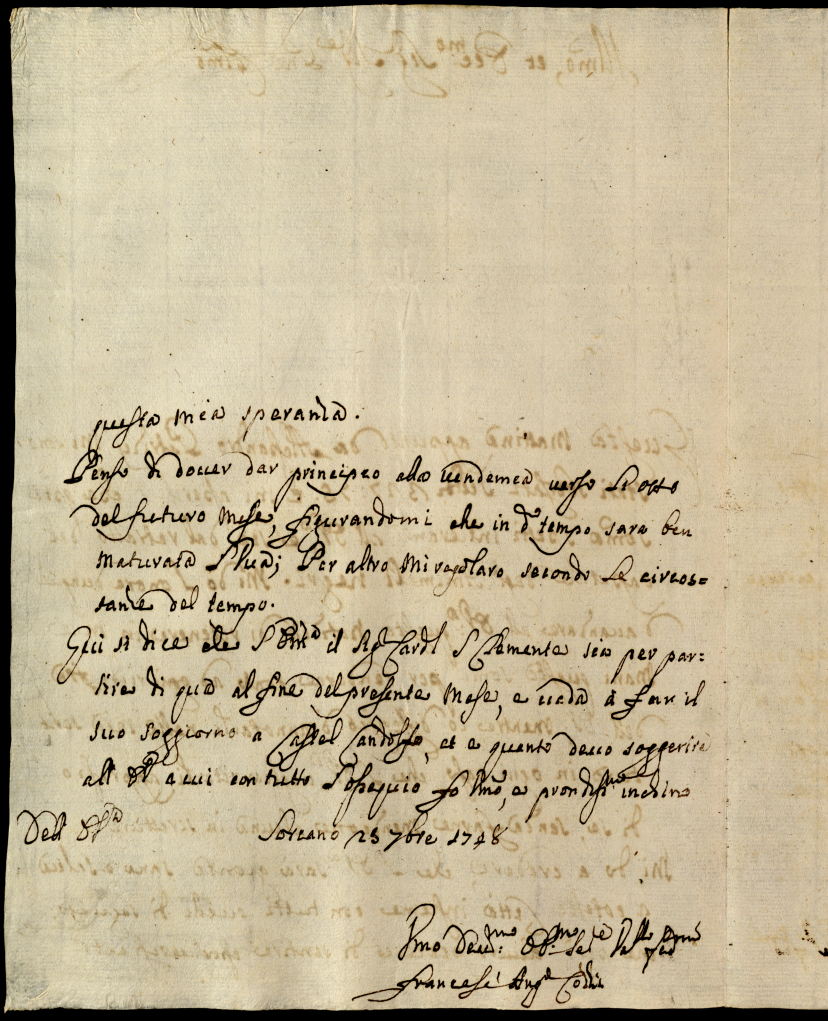 questa mia speranza.
Penso di dover dar principio alla vendemia verso li otto
del futuro Mese, figurandomi che in do tempo sara ben
maturata l'Uva; Per altro mi regolaro secondo le circos=
tanze del tempo.
Qui si dice che l'Emza il Sigr Cardl S Clemente sia per par=
tire di qua al fine del presente Mese, e vada à far il
suo soggiorno a Castel Gandolfo, et e quanto devo soggerire
all' a cui con tutto l'ossequio fo Umo, e prondissmo inchino
Dell' Soriano 23 7bre 1748
Francesc Ango